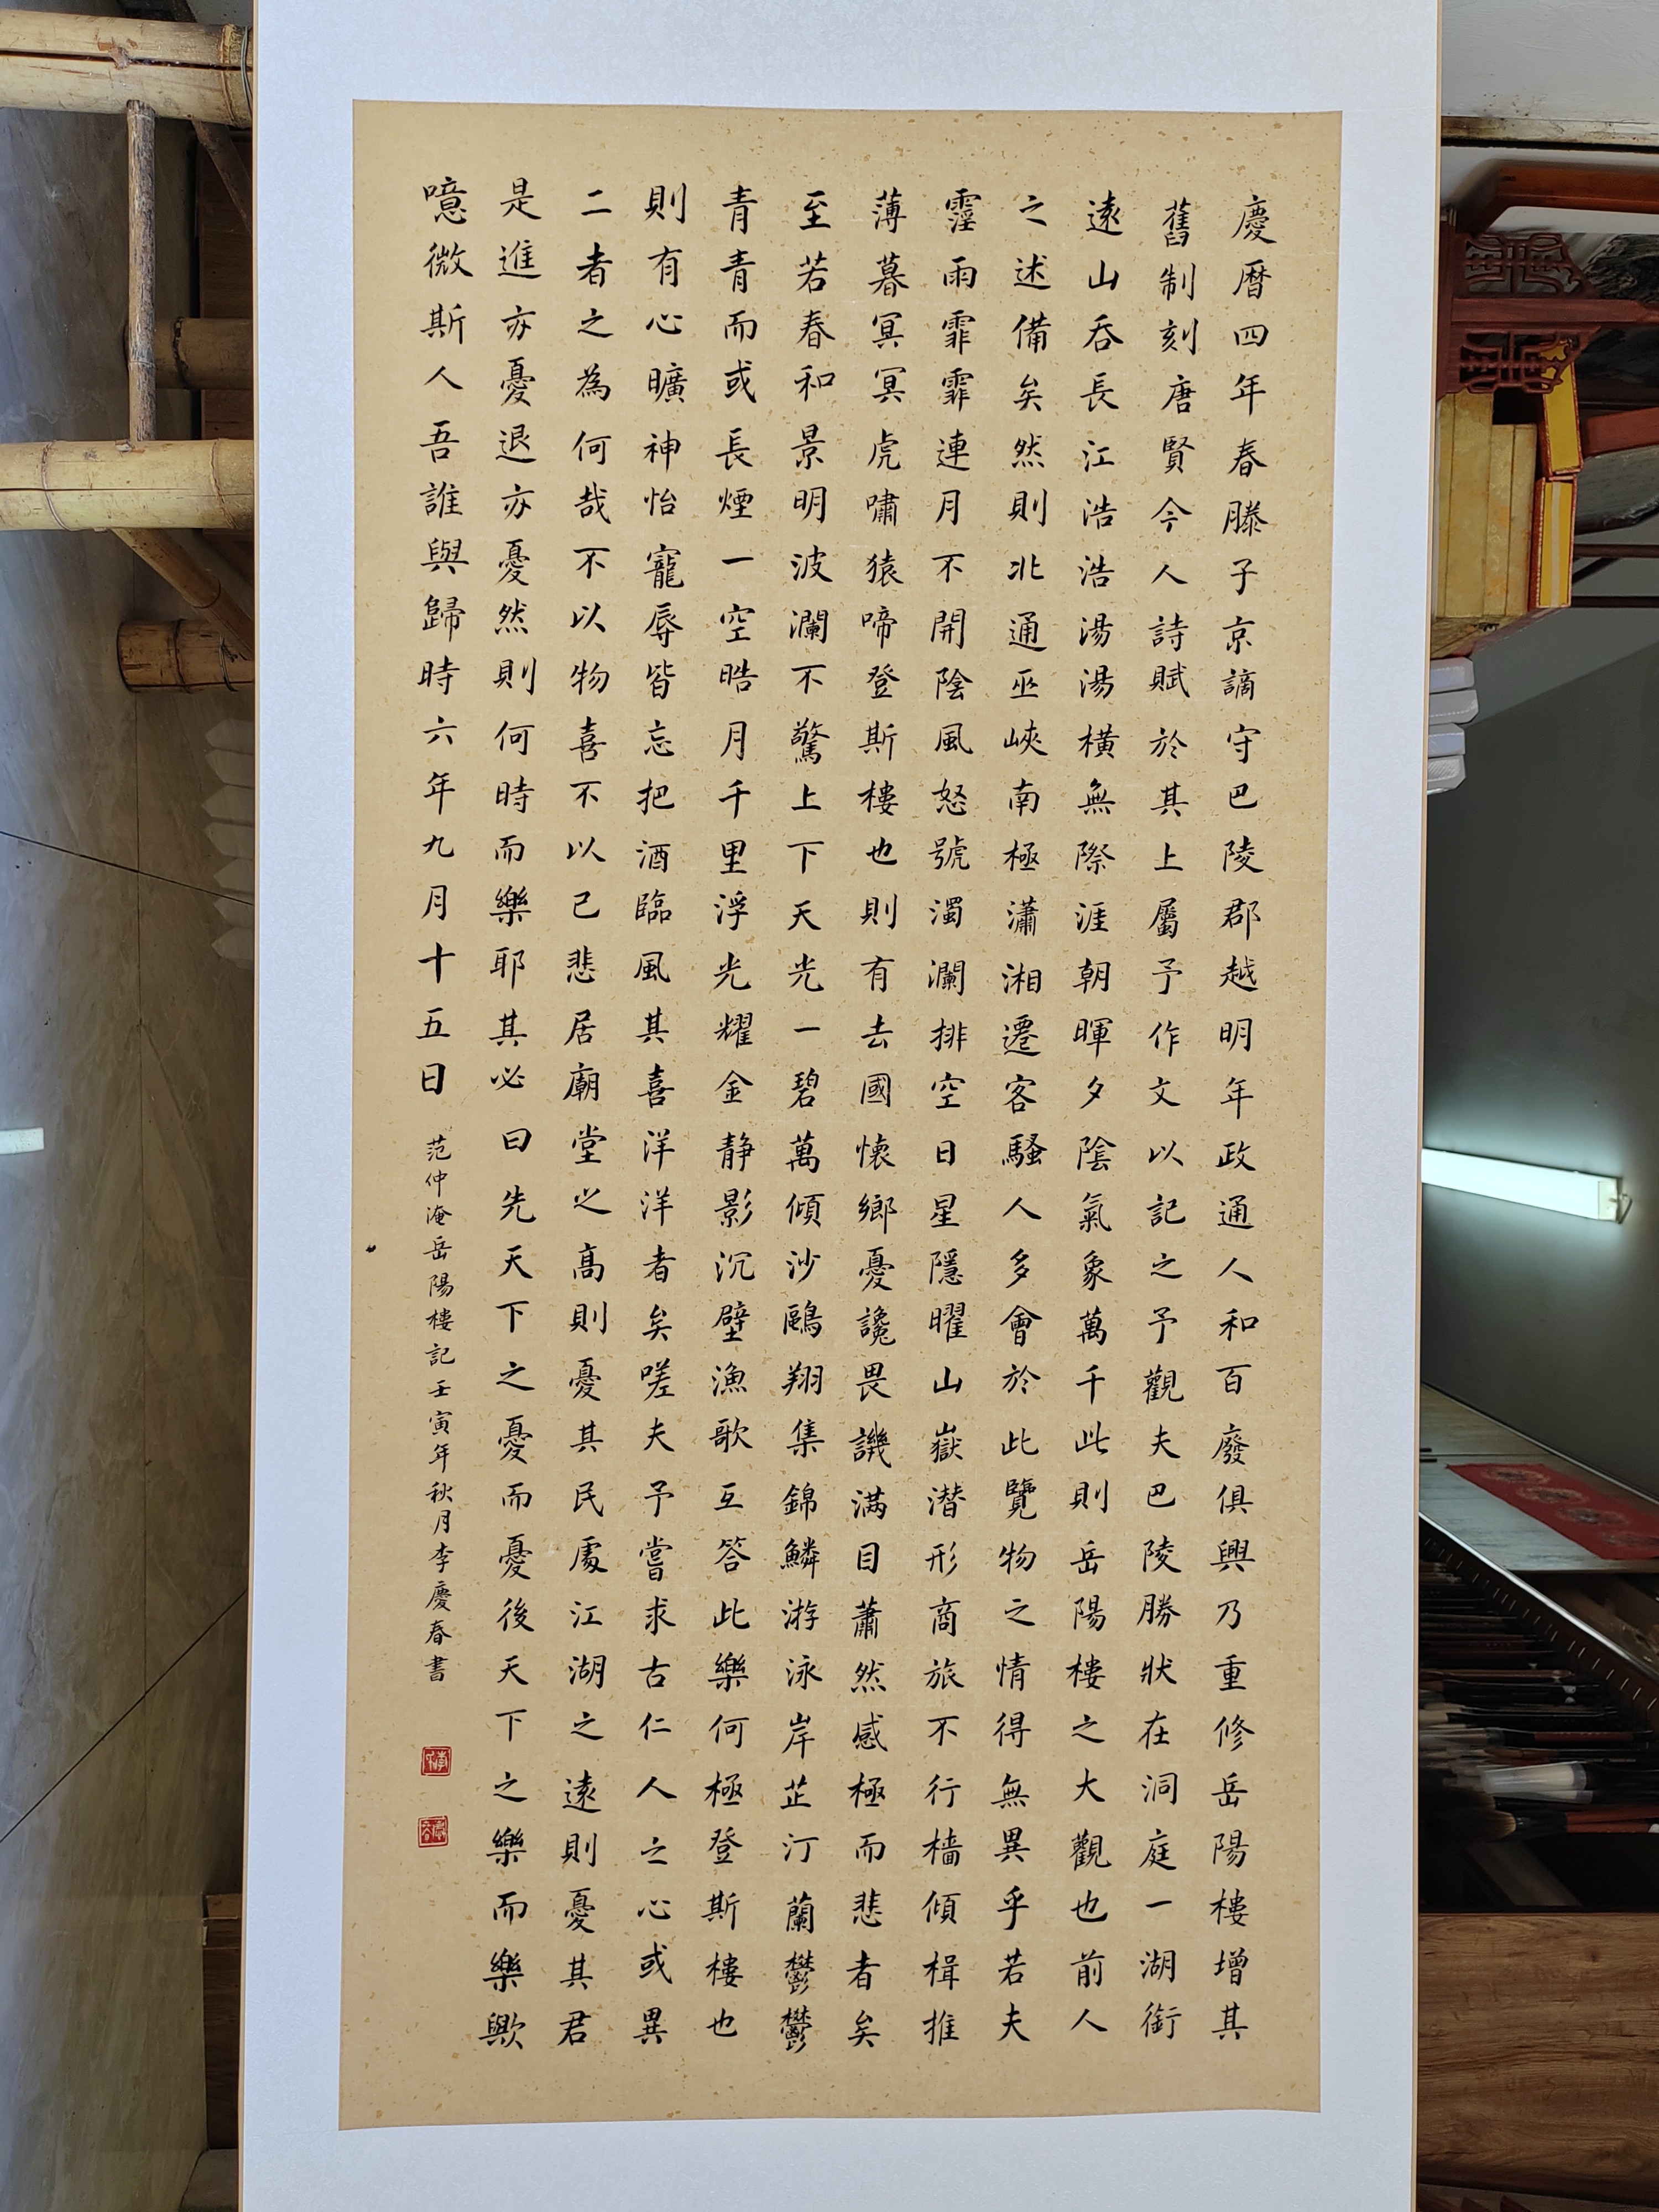 慶曆四年春滕子京謫守巴陵郡越明年政通人和百廢俱興乃重修岳陽樓增其
舊制刻唐賢今人詩賦於其上屬予作文以記之予觀夫巴陵勝狀在洞庭一湖銜
遠山吞長江浩浩湯湯橫無際涯朝暉夕陰氣象萬千此則岳陽樓之大觀也前人
之述備矣然則北通巫峽南極瀟湘遷客騷人多會於此覽物之情得無異乎若夫
霪雨霏霏連月不開陰風怒號濁瀾排空日星隱曜山嶽潛形商旅不行檣傾楫摧
薄暮冥冥虎嘯猿啼登斯樓也則有去國懷鄉憂讒畏譏滿目蕭然感極而悲者矣
至若春和景明波瀾不驚上下天光一碧萬傾沙鷗翔集錦鱗游泳岸芷汀蘭鬱鬱
青青而或長煙一空皓月千里浮光耀金静影沉壁漁歌互答此樂何極登斯樓也
則有心曠神怡寵辱皆忘把酒臨風其喜洋洋者矣嗟夫予嘗求古仁人之心或異
二者之為何哉不以物喜不以己悲居廟堂之高則憂其民處江湖之遠則憂其君
是進亦憂退亦憂然則何時而樂耶其必曰先天下之憂而憂後天下之樂而樂歟
噫微斯人吾誰與歸時六年九月十五日
范仲淹岳陽樓記壬寅年秋月李慶春書